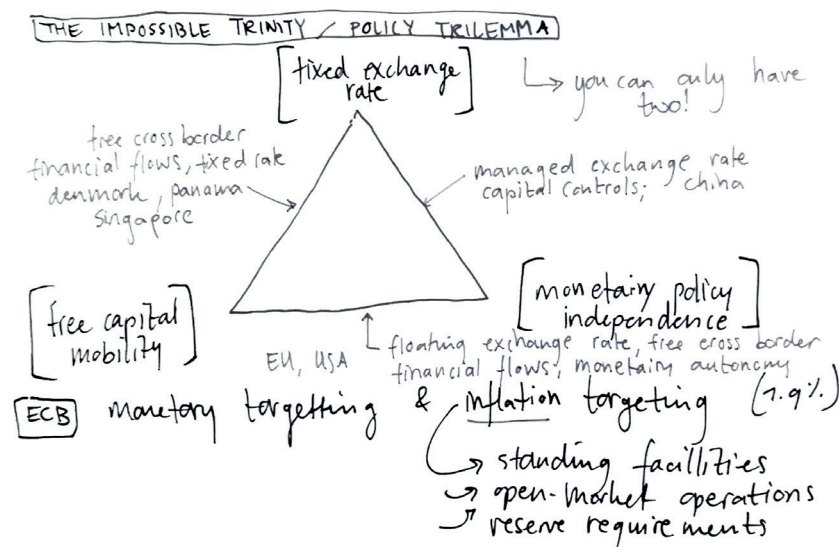 THE IMPOSSIBLE TRINITY / POLICY TRILEMMA
[fixed exchange
rate]
↳ you can only have
two!
free cross border
financial flows, fixed rate
denmark, panama
singapore
managed exchange rate
capital controls; china
[free capital
mobility]
[monetairy policy
independence]
EU, USA
floating exchange rate, free cross border
financial flows, monetairy autonomy
ECB monetary targetting & inflation targeting (1.9%)
→ standing facillities
→ open-market operations
→ reserve requirements